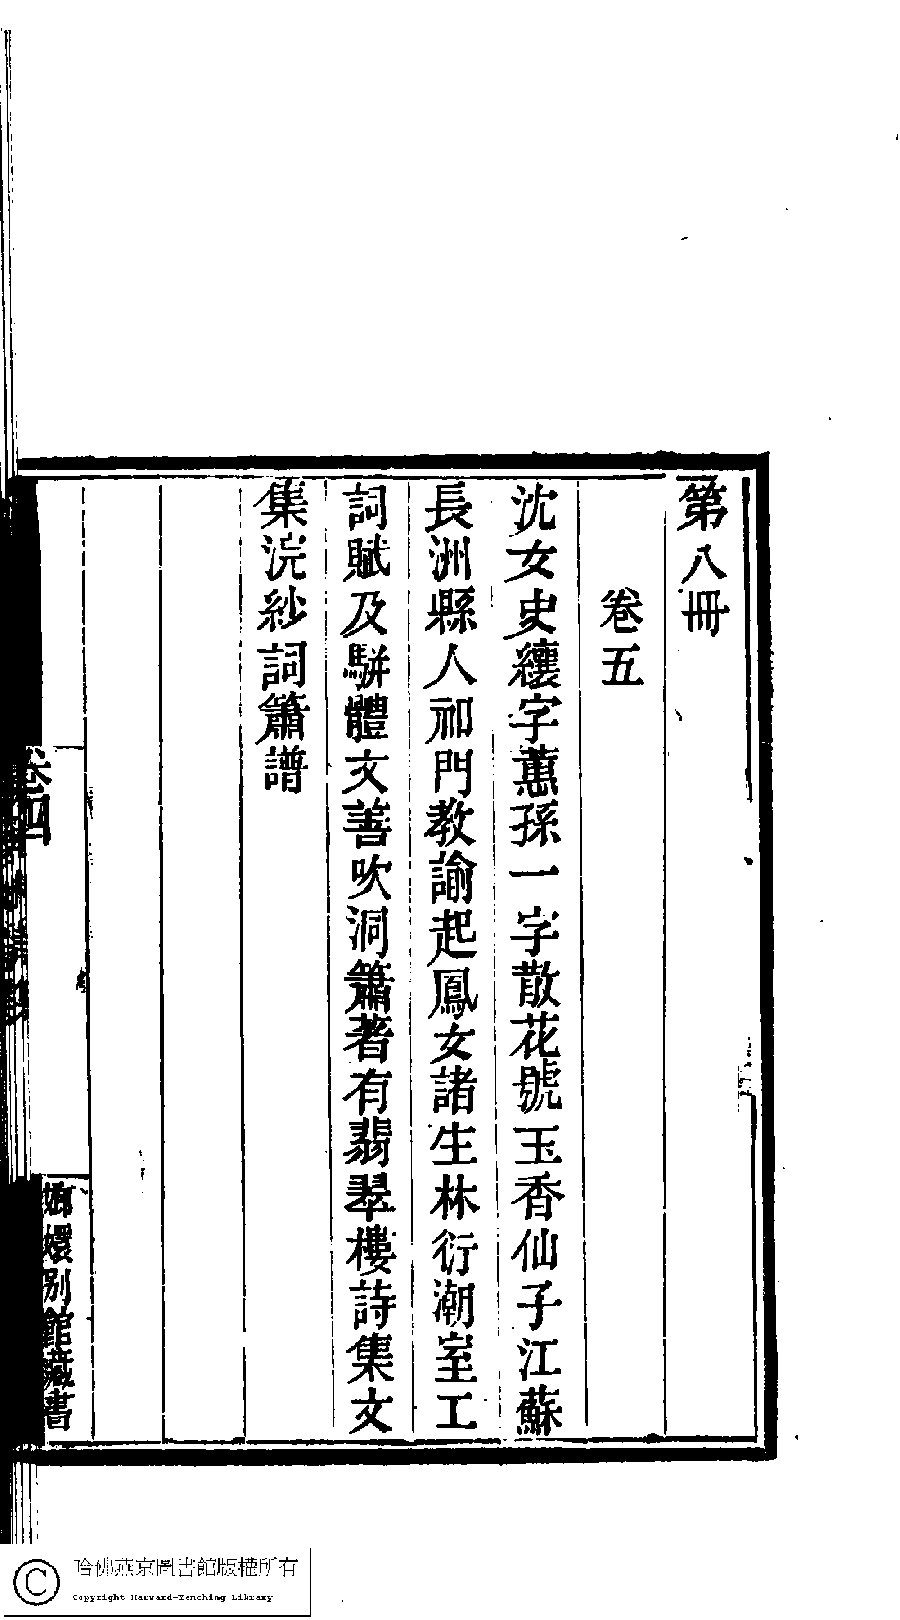 第八冊
卷五
沈女史纕字蕙孫一字散花號玉香仙子江蘇
長洲縣人祁門教諭起鳳女諸生林衍潮室工
詞賦及駢體文善吹洞簫著有翡翠樓詩集文
集浣紗詞簫譜
卷四
嫏嬛別館藏書
哈佛燕京圖書館版權所有
Copyright Harvard-Yenching Library